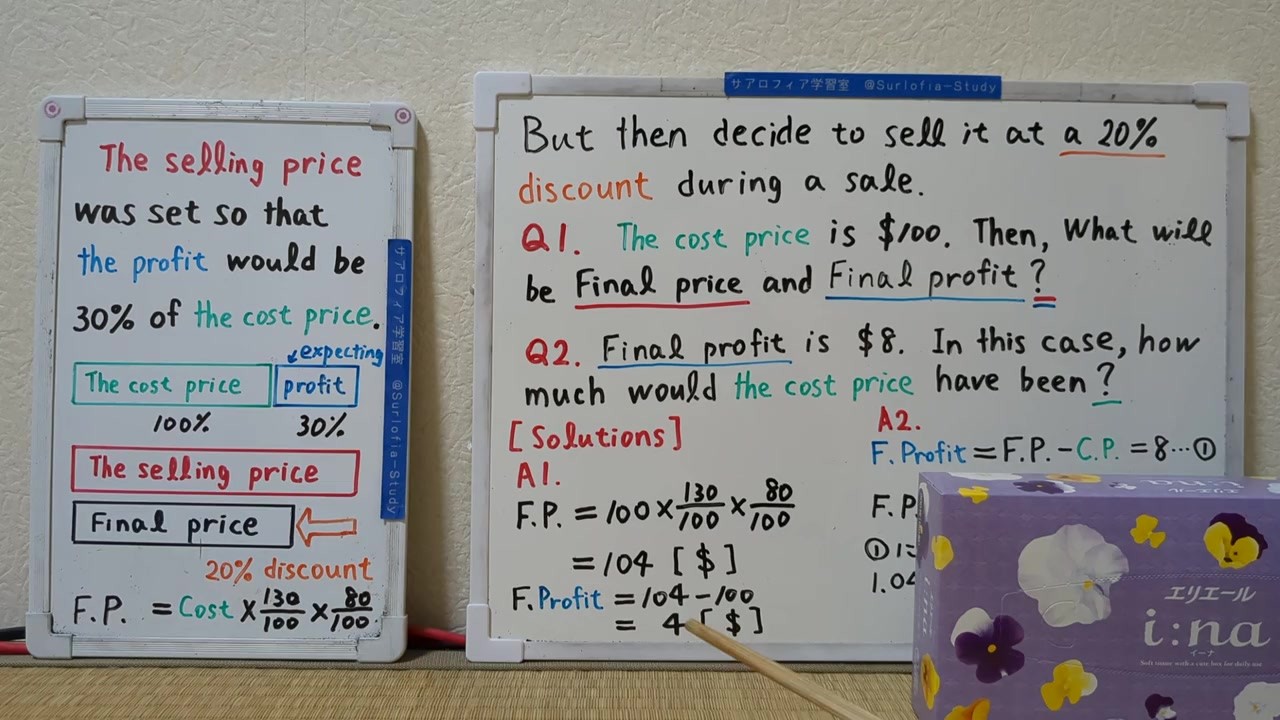 The selling price
was set so that
the profit would be
30% of the cost price.
expecting
The cost price profit
100% 30%
The selling price
Final price
20% discount
F.P. = Cost × 130/100 × 80/100
サアロフィア学習室 @Surlofia-Study
サアロフィア学習室 @Surlofia-Study
But then decide to sell it at a 20%
discount during a sale.
Q1. The cost price is $100. Then, What will
be Final price and Final profit?
Q2. Final profit is $8. In this case, how
much would the cost price have been?
[Solutions]
A1.
F.P. = 100 × 130/100 × 80/100
= 104 [$]
F.Profit = 104 - 100
= 4 [$]
A2.
F.Profit = F.P. - C.P. = 8 … ①
F.P
① 1=
1.04
エリエール
i:na
イーナ
Soft tissue with a cute box for daily use